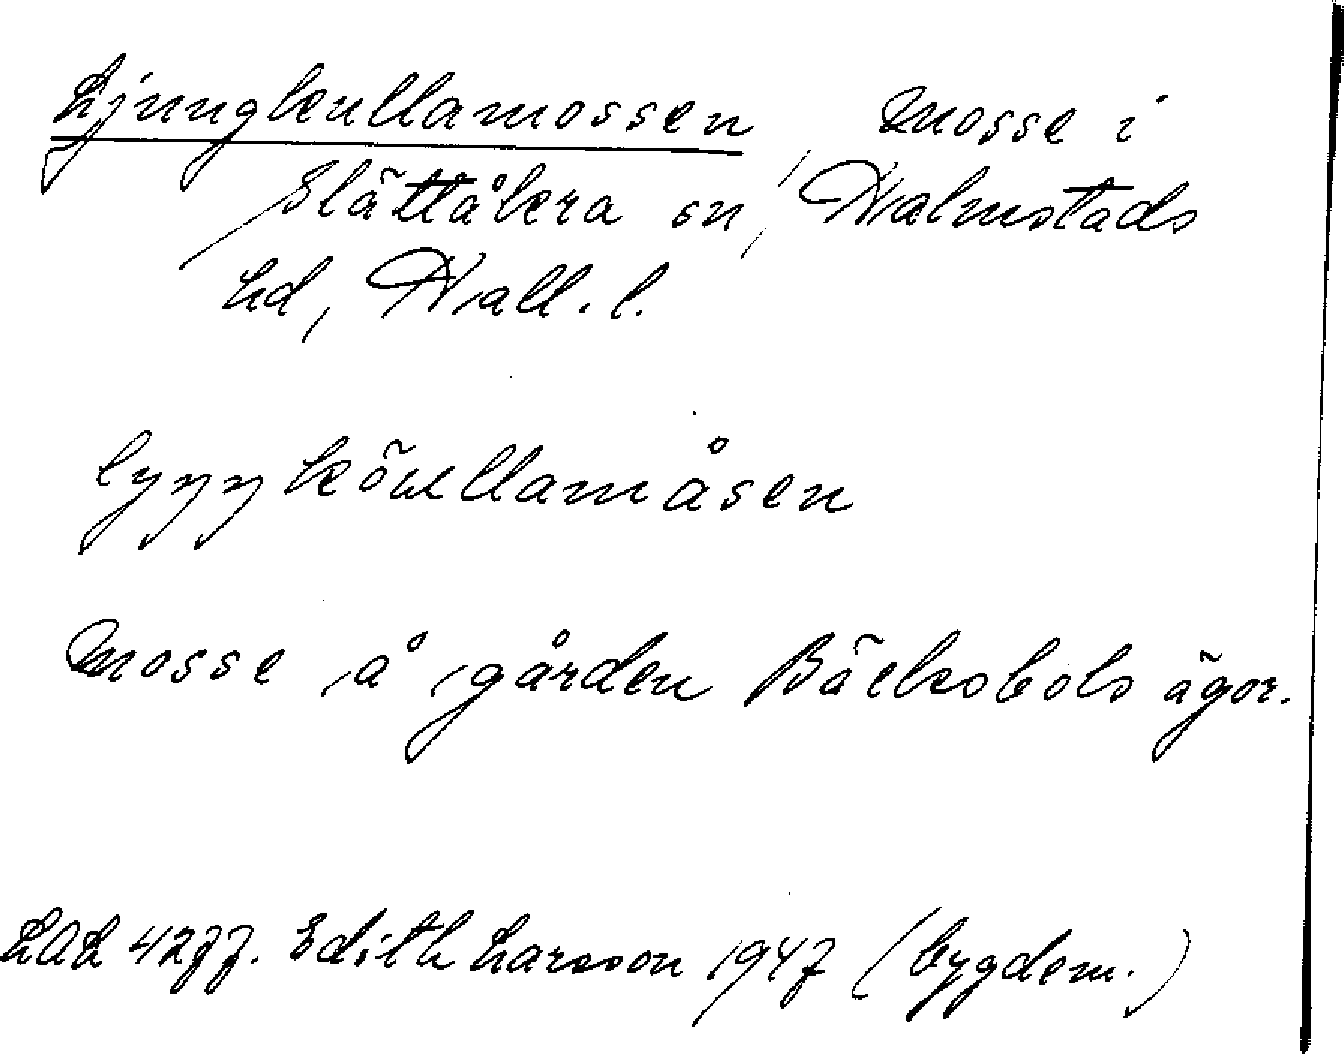 Ljungkullamossen, mosse i
Slättåkra sn, Halmstads
hd, Hall. l.
lyŋŋköullamåsen
mosse å gården Bäcksbols ägor.
LAL 4277. Edith Larsson 1947 (bygdem.)